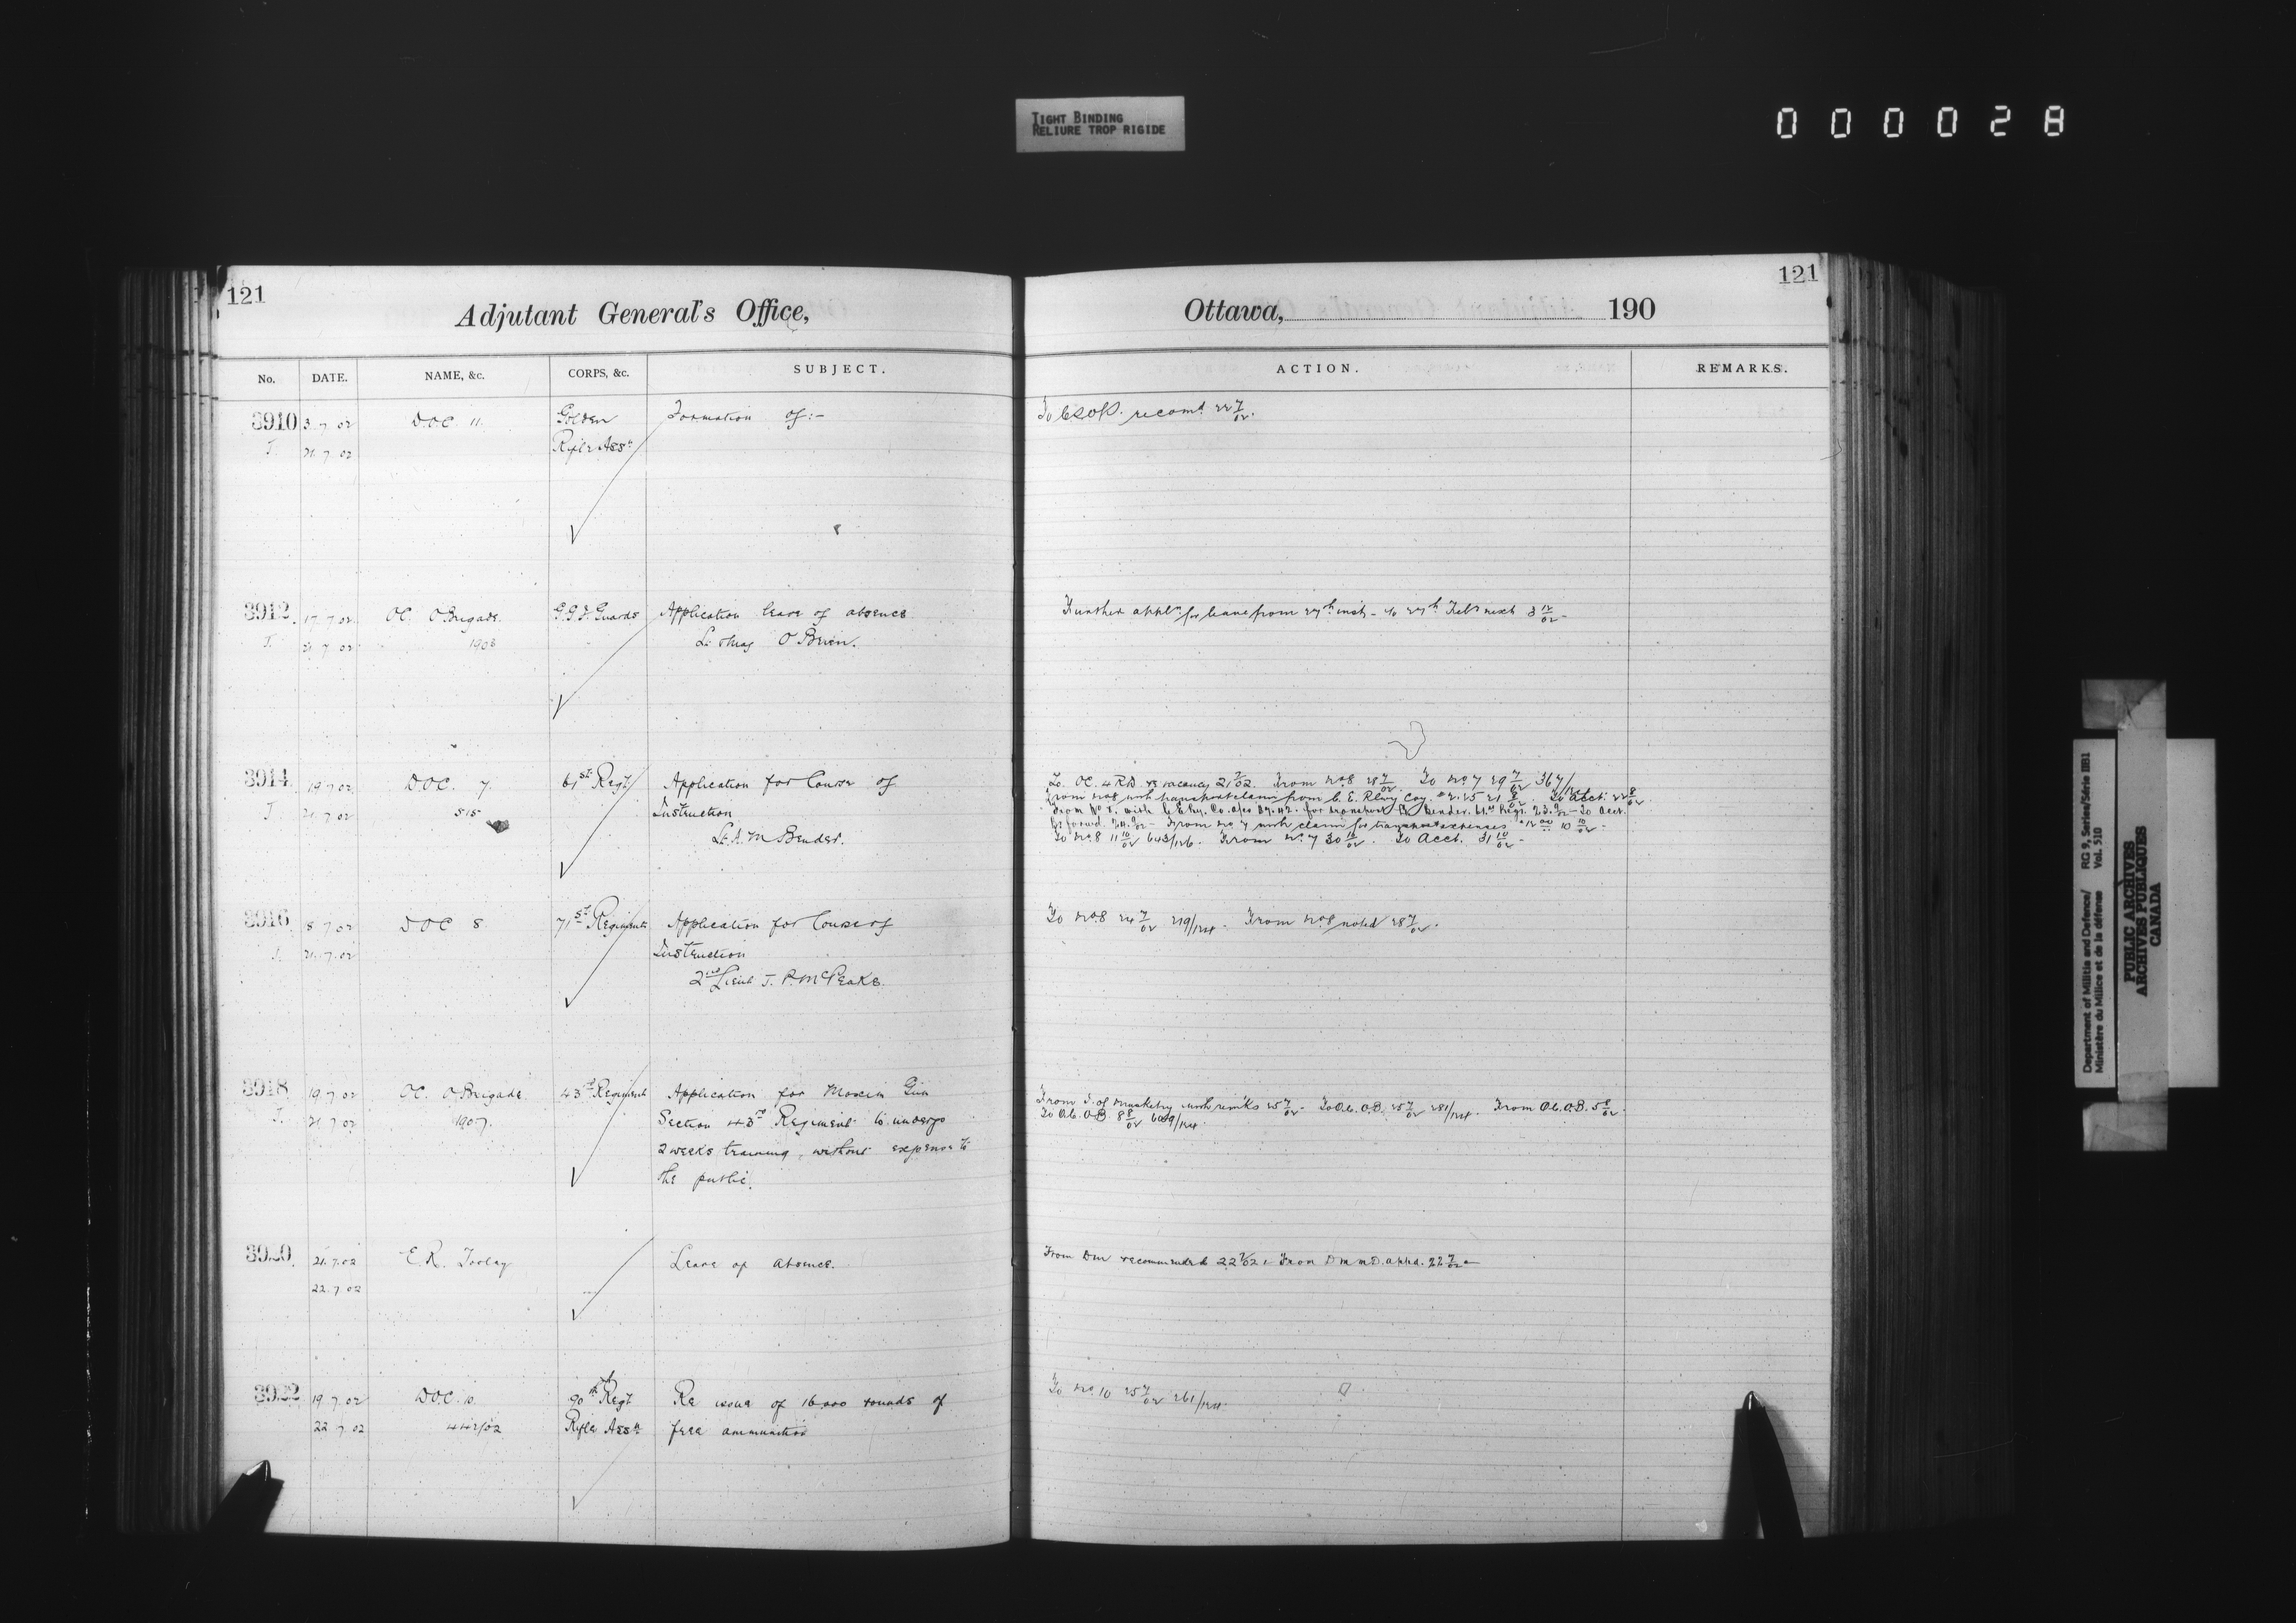 TIGHT BINDING
RELIURE TROP RIGIDE
000028
121
Adjutant General's Office,
No. DATE. NAME, &c. CORPS, &c. SUBJECT.
3910 3.7.02 D.O.C. 11. Golden Formation of:-
J. 21.7.02 Rifle Assn
3912 17.7.02 OC. O Brigade. G.G.F. Guards Application leave of absence.
J. 21.7.02 1903 Lt. O'Brien.
3914 19.7.02 D.O.C. 7. 61st Regt Application for Course of
J. 21.7.02 515 Instruction
Lt. A. M Bender.
3916 8.7.02 DOC 8. 71st Regiment Application for Course of
J. 21.7.02 Instruction
2nd Lieut J. P. McPeake.
3918 19.7.02 OC. O Brigade 43rd Regiment Application for Maxim Gun
J. 21.7.02 1907. Section 43rd Regiment to undergo
2 weeks training, without expense to
the public.
3920 21.7.02 E.R. Leave of absence.
22.7.02
3922 19.7.02 DOC. 10. 90th Regt Re issue of 16,000 rounds of
22.7.02 442/02 Rifle Assn free ammunition
121
Ottawa, 190
ACTION. REMARKS.
To recomd. 22 7/02.
Further appln for leave from 27th inst - to 27th Feb next 3 12/02 -
To OC. 4 RD re vacancy 21 7/02. From No. 8 28 7/02. To No. 7 29 7/02 367/
From No. 8 with transport claim from C. E. Rlwy Coy. 21 8/02. To Acct. 22 8/02.
for transport Lt. Bender. 61st Regt. 23. 9/02 - To Acct.
From No. 7 with claim for transport expenses 10 10/02 -
To No. 8 11 10/02 643/126. From No. 7 30 10/02. To Acct. 31 10/02 -
To No. 8 24 7/02 219/124. From No. 8 noted 28 7/02.
From S. of Musketry with remks 25 7/02 - To O.C. O.B. 25 7/02 281/124. From O.C. O.B. 5 8/02.
To O.C. O.B. 8 8/02 609/124.
From DM recommended 22 7/02. From D M M D. apprd. 22 7/02 -
To No. 10 25 7/02 261/124.
Department of Militia and Defence/ RG 9, Series/Série IIB1
Ministère du Milice et de la défense Vol. 510
PUBLIC ARCHIVES
ARCHIVES PUBLIQUES
CANADA